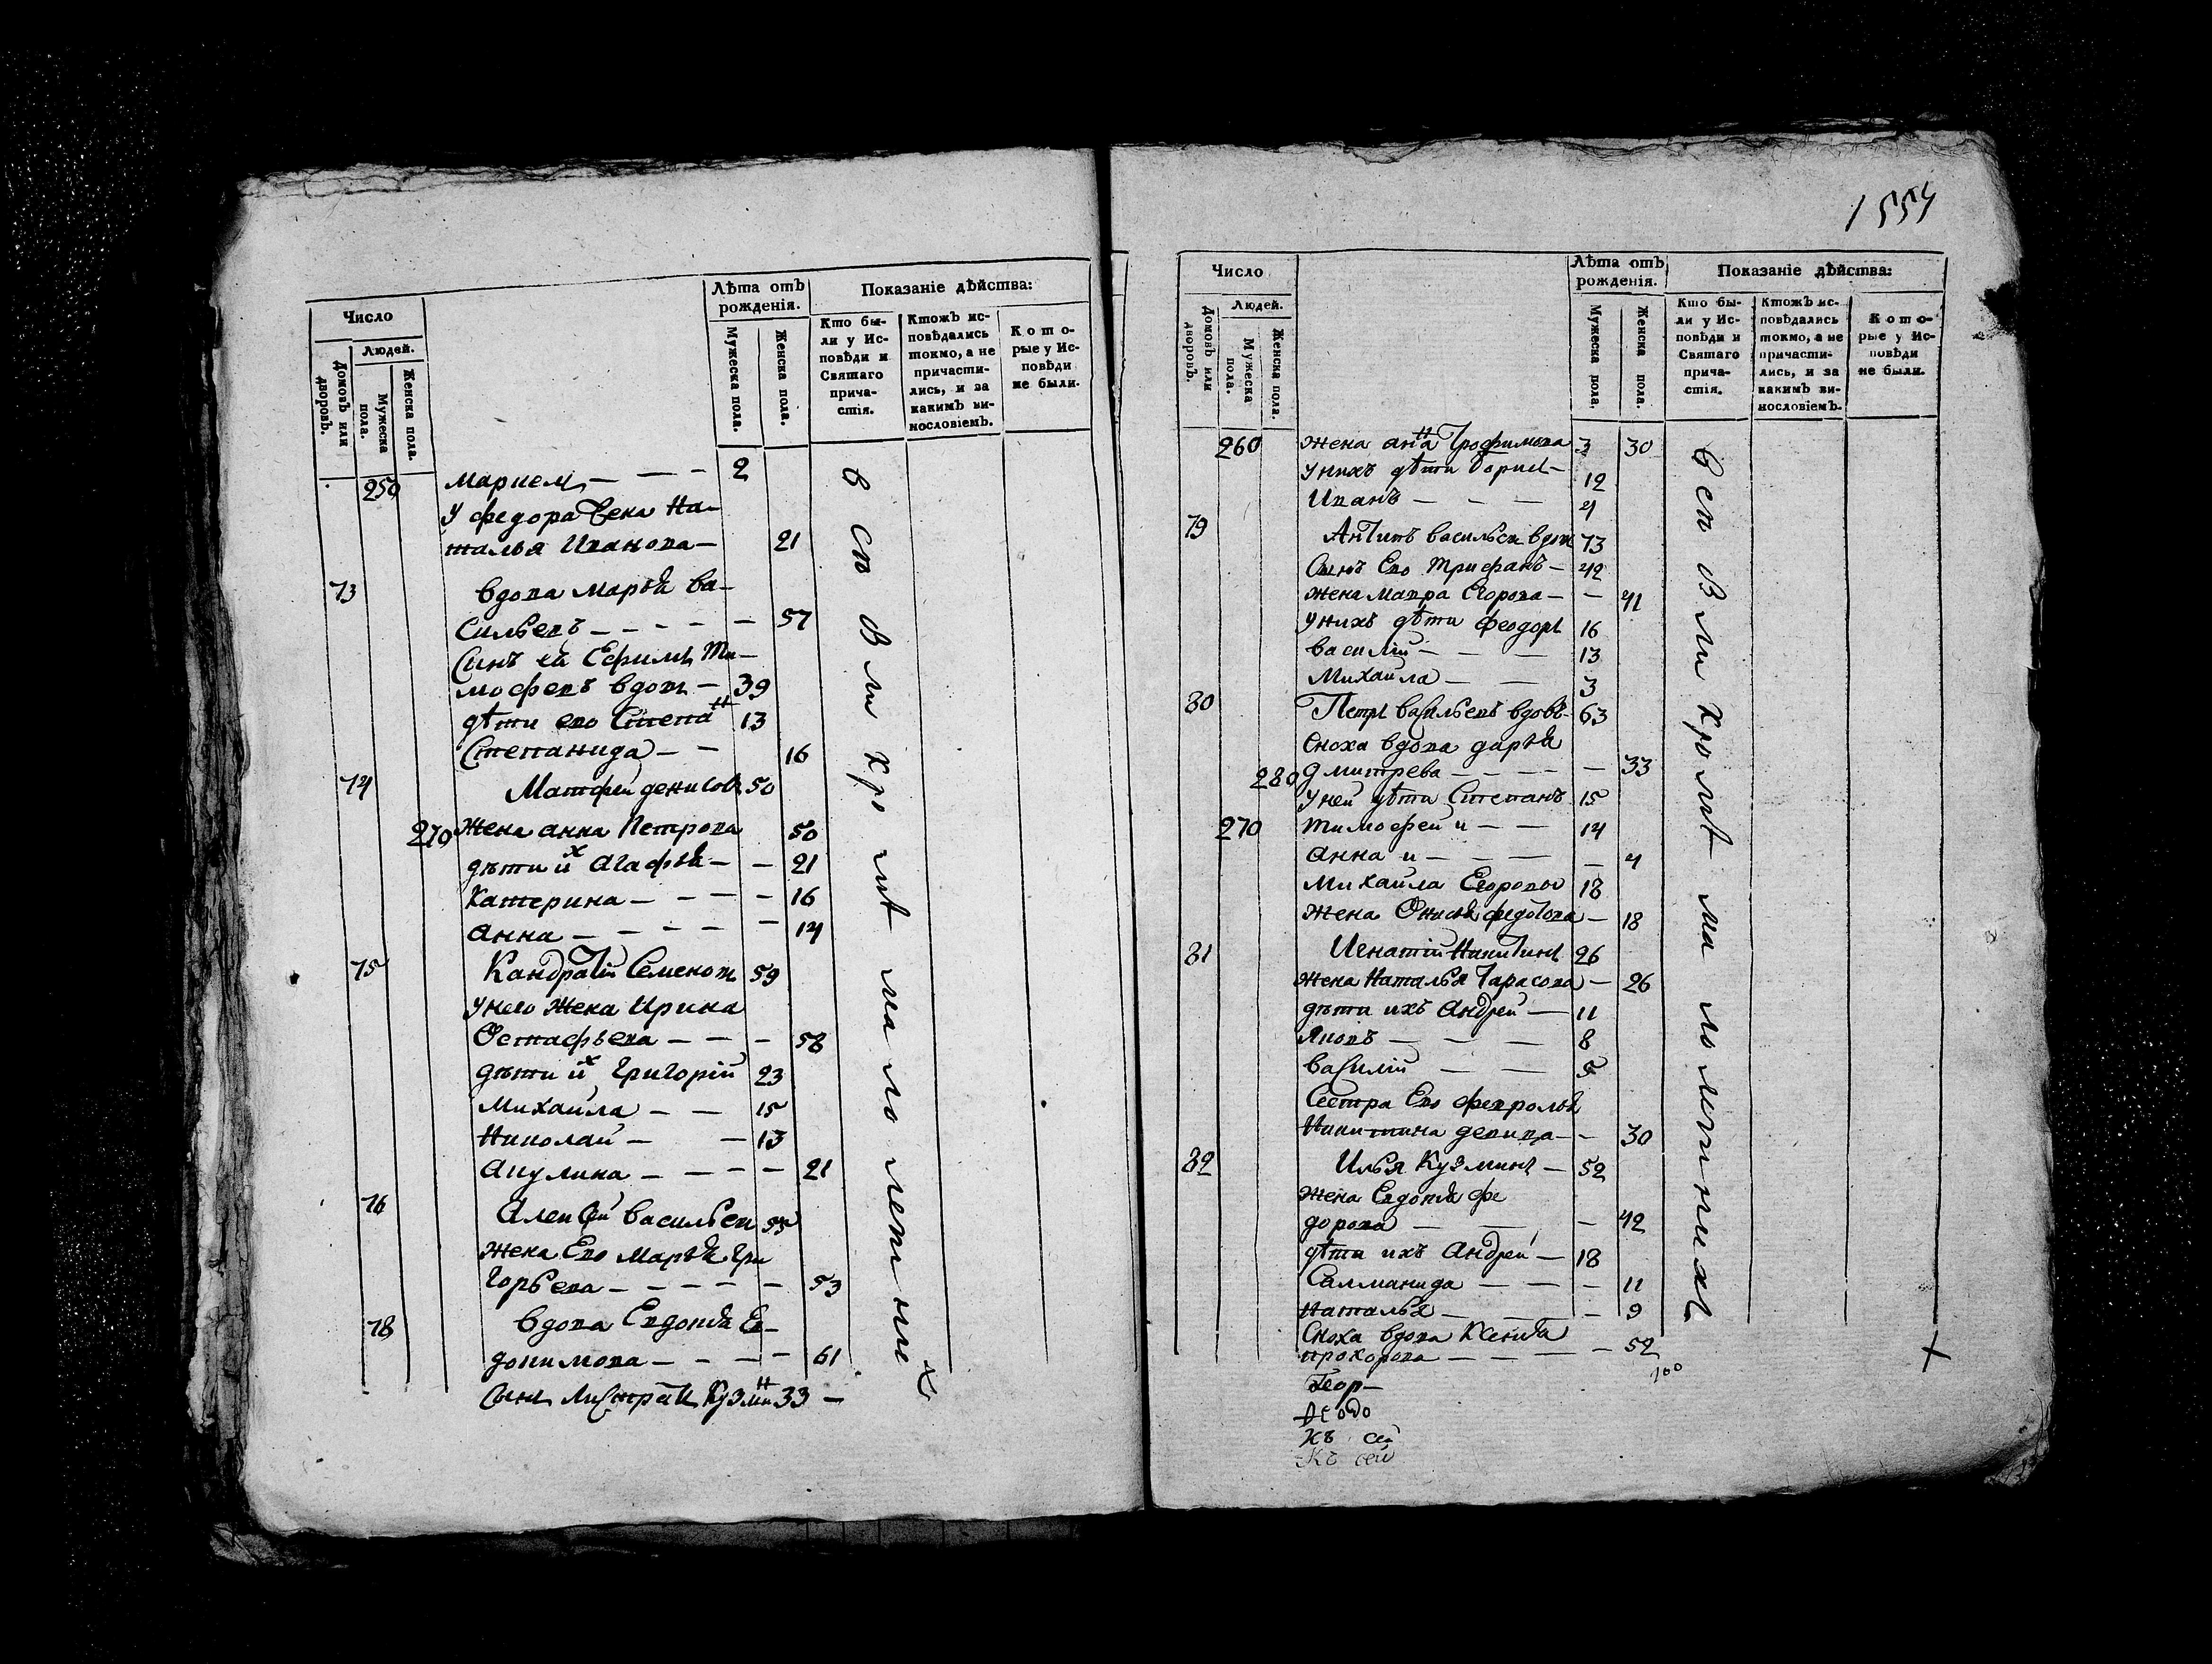 Число
Лѣта отъ рожденія.
Показаніе дѣйства:
Людей.
Домовъ или дворовъ.
Мужеска пола.
Женска пола.
Мужеска пола.
Женска пола.
Кто были у Исповѣди и Святаго причастія.
Ктожъ исповѣдались токмо, а не причастились, и за какимъ винословіемъ.
Которые у Исповѣди не были.
250 — — — 2
у федора жена На-
талья Иванова — 21
73 вдова марѳа ва-
сильевъ — — — — — 57
Сынъ ея Ефимъ Ти-
мофеевъ вдовъ — 39
дѣти его Степанъ 13
Степанида — — 16
74 Матфей денисовъ 50
270 Жена анна Петрова 50
дѣти их агафья — — 21
Катерина — — — — 16
анна — — — — — 14
75 Кандратій Семеновъ 59
у него Жена Ирина
Остафьева — — — 58
дѣти их Григорій 23
Михаила — — 15
Николай — — 13
акулина — — — — 21
76 Алексѣй васильевъ 55
жена Его марѳа Гри
горьева — — — — — 53
78 вдова Евдокія Ев-
докимова — — — — — 61
Сынъ Кузмин 33 —
всѣ были кромѣ малолетних
1554
Число
Лѣта отъ рожденія.
Показаніе дѣйства:
Людей.
Домовъ или дворовъ.
Мужеска пола.
Женска пола.
Мужеска пола.
Женска пола.
Кто были у Исповѣди и Святаго причастія.
Ктожъ исповѣдались токмо, а не причастились, и за какимъ винословіемъ.
Которые у Исповѣди не были.
260 жена анна Трофимова 3 30
у нихъ дѣти борисъ — 12
Иванъ — — — 4
79 Антипъ васильевъ вдовъ 73
Сынъ Его Трифанъ — 42
жена мавра Егорова — — 41
у нихъ дѣти феодоръ 16
василій — — — 13
Михаила — — 3
80 Петръ васильевъ вдовъ — 63
Сноха вдова дарья
280 дмитрева — — — — — 33
у ней дѣти Степанъ 15
270 тимофей и — — 14
анна и — — — — 4
Михаила Егоровъ 18
жена Онисья федотова — 18
81 Игнатій Никитинъ 26
жена Наталья Тарасова — 26
дѣти ихъ андрей — 11
Яковъ — — — 8
василій — — 5
Сестра Его февронья
Никитина девица — — 30
82 Илья Кузминъ — 52
жена Евдокія фе
дорова — — — 42
дѣти ихъ андрей — 18
Саламанида — — — 11
Наталья — — — 9
Сноха вдова Ксения
прохорова — — — — 52
Геор —
къ сей
къ сей
всѣ были кромѣ малолетнихъ